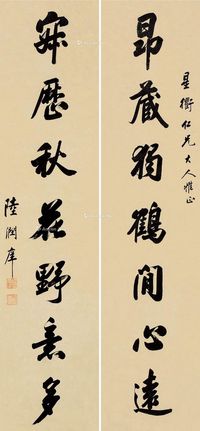 星衡仁兄大人雅正
昂藏獨鶴閒心遠
寂歷秋花野意多
陸潤庠